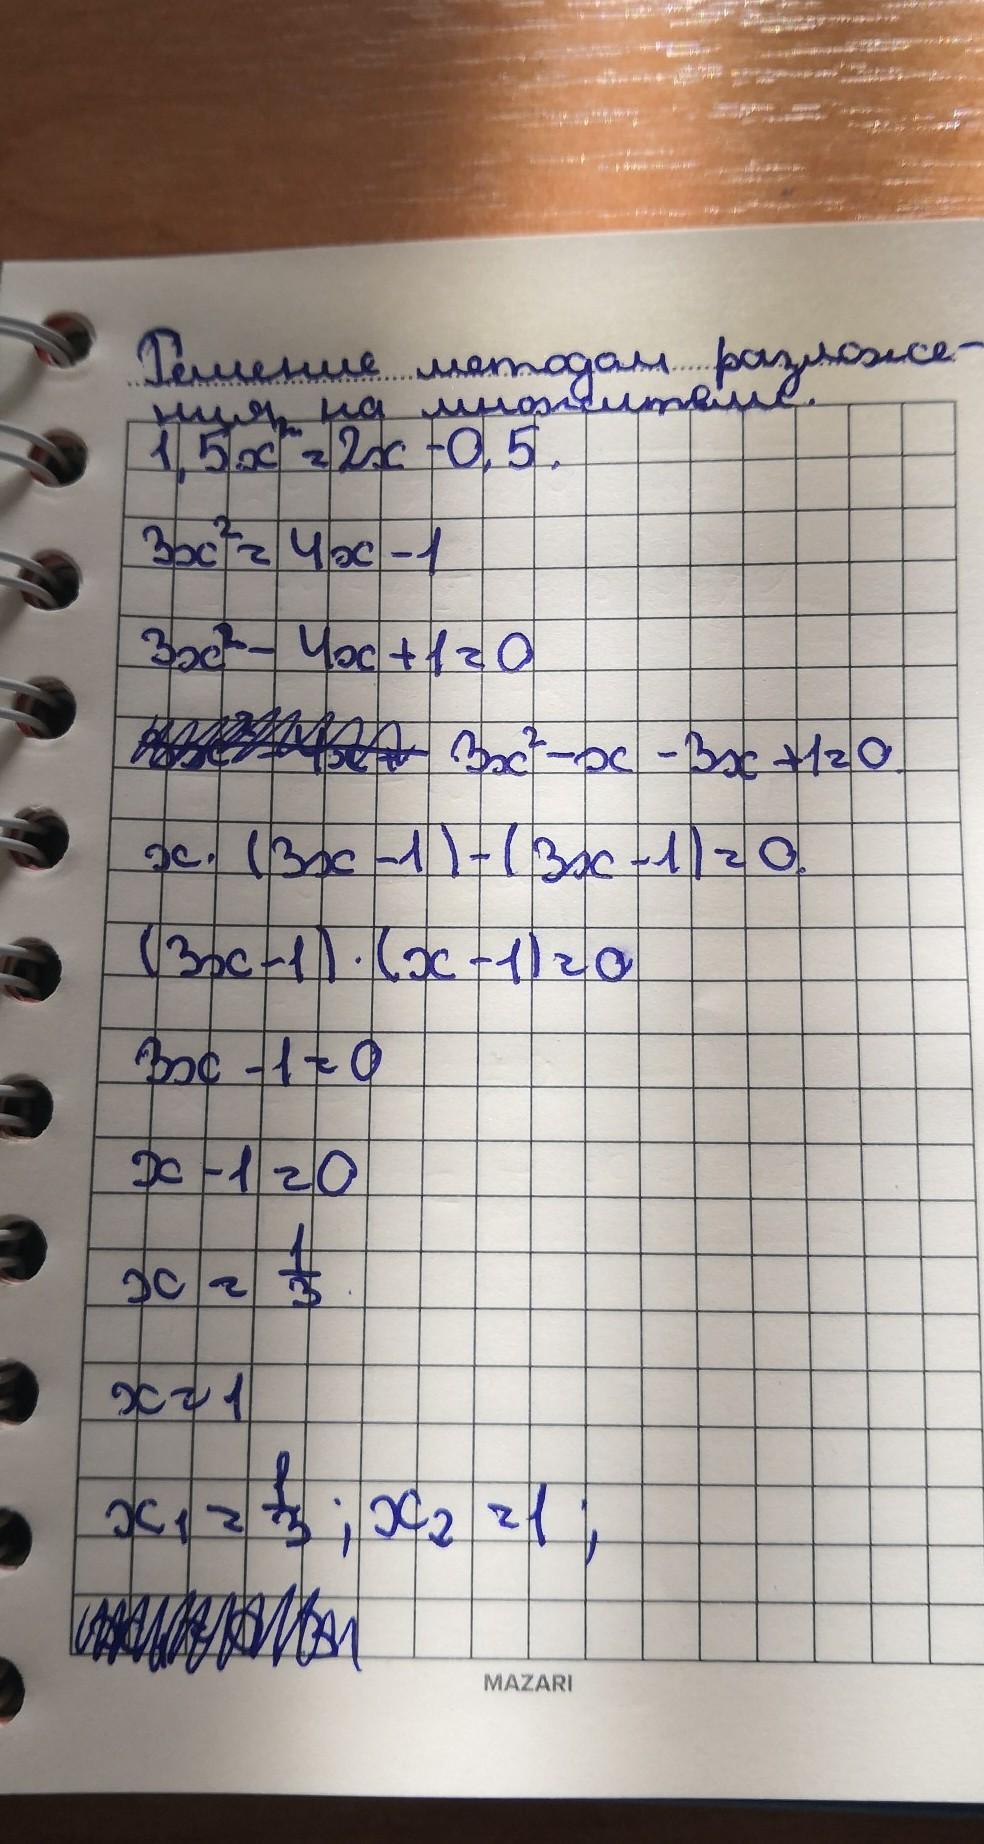 Решение методам разложе-
ния на множители.
1,5x² = 2x - 0,5.
3x² = 4x - 1
3x² - 4x + 1 = 0
3x² - x - 3x + 1 = 0.
x · (3x - 1) - (3x - 1) = 0.
(3x - 1) · (x - 1) = 0
3x - 1 = 0
x - 1 = 0
x = 1/3
x = 1
x₁ = 1/3 ; x₂ = 1 ;
MAZARI